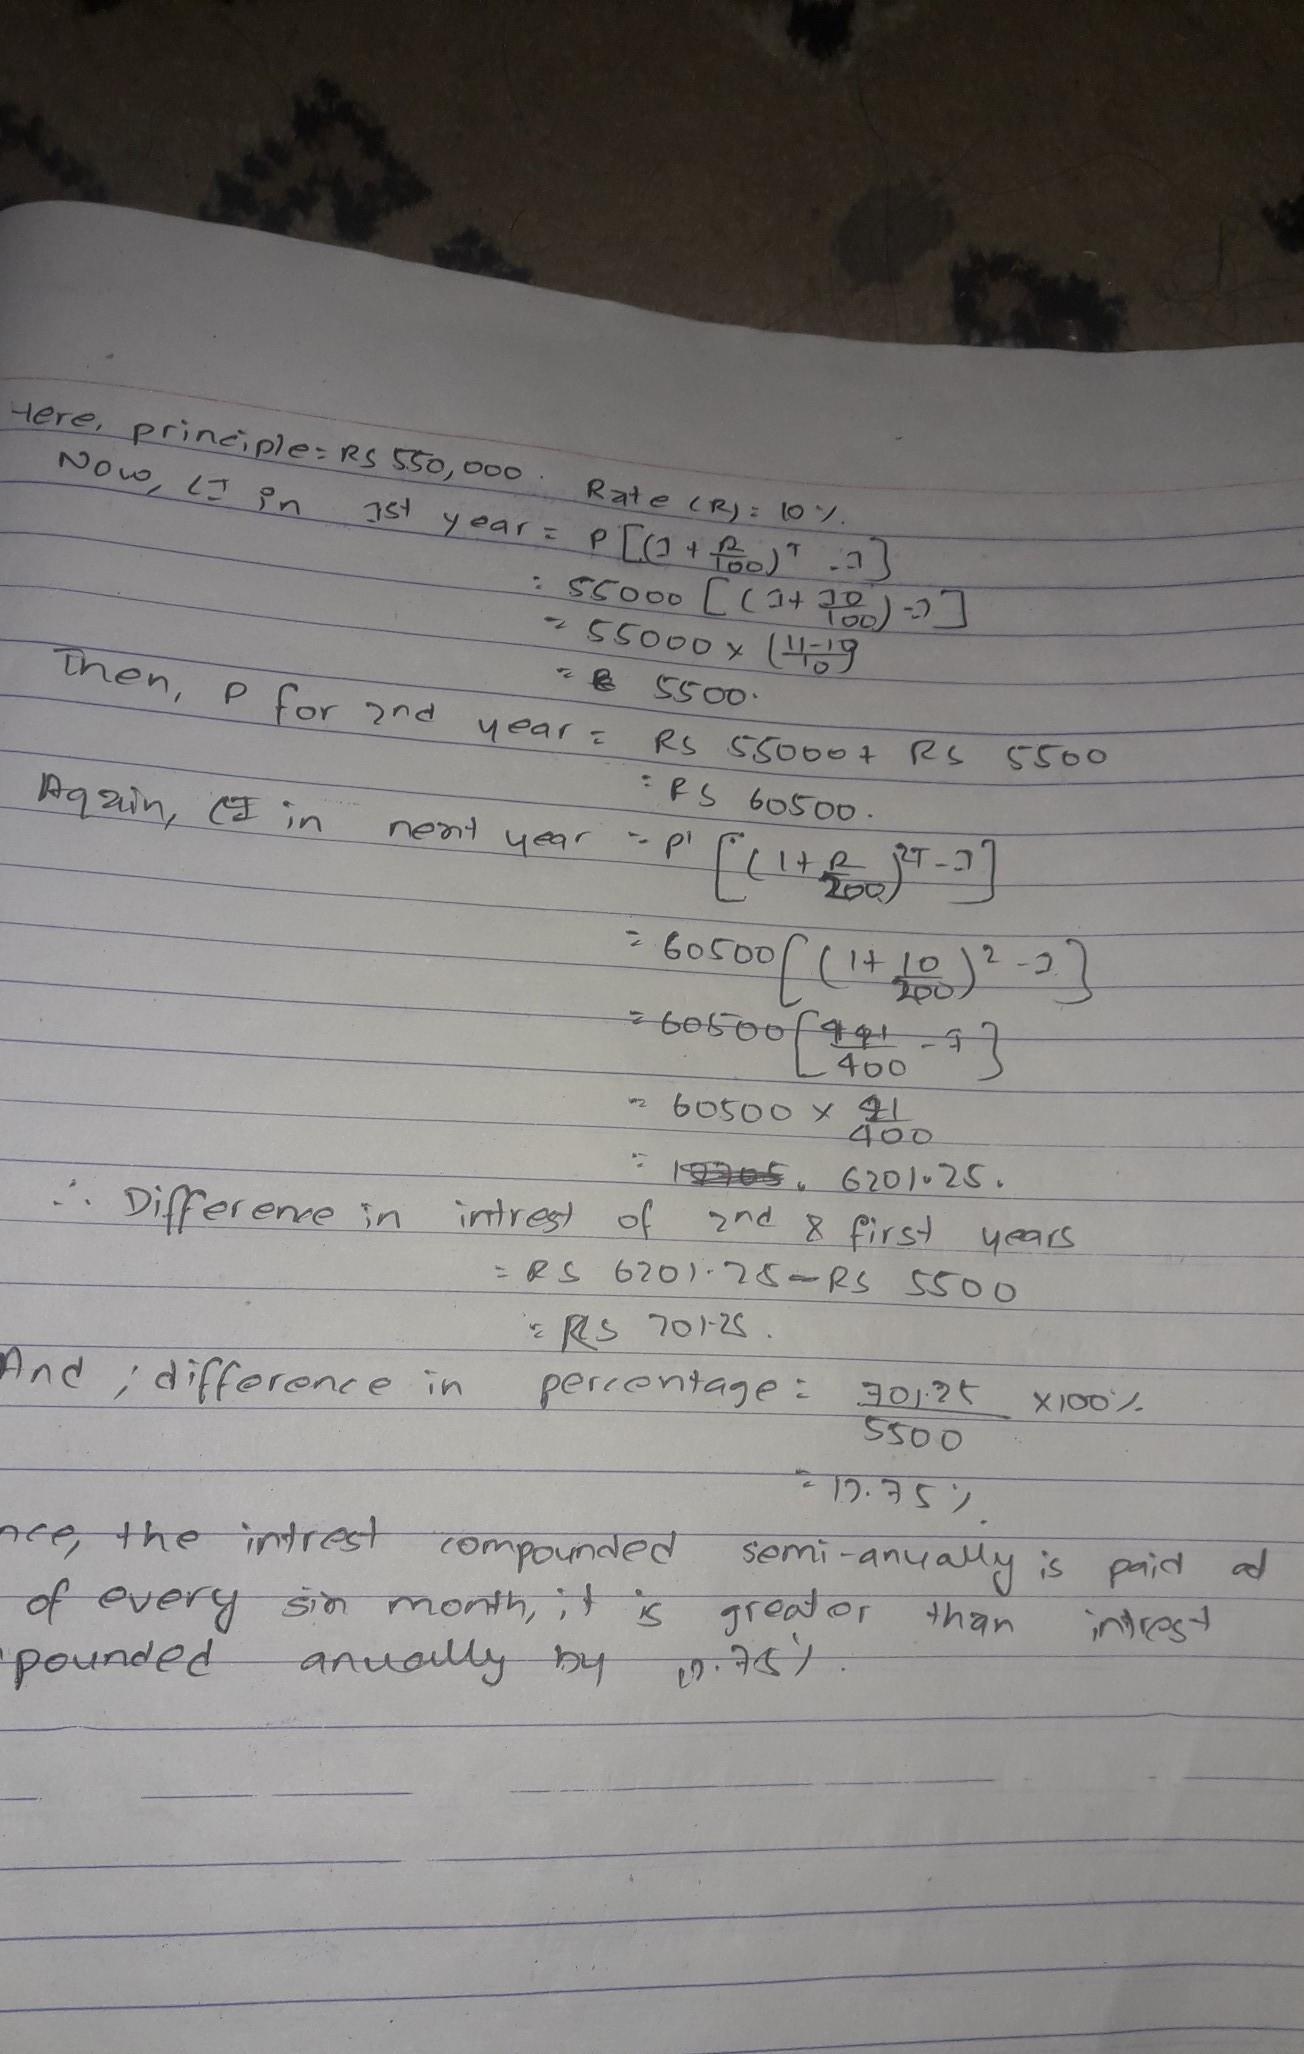 Here, principle = RS 550,000. Rate (R) = 10%.
Now, CI in 1st year = P[(1 + R/100)^T - 1]
= 55000 [(1 + 10/100) - 1]
= 55000 × (11-10/10)
= 5500.
Then, P for 2nd year = RS 55000 + RS 5500
= RS 60500.
Again, CI in next year = P' [(1 + R/200)^2T - 1]
= 60500 [(1 + 10/200)^2 - 1]
= 60500 [441/400 - 1]
= 60500 × 41/400
= 6201.25.
∴ Difference in intrest of 2nd & first years
= RS 6201.25 - RS 5500
= RS 701.25.
And ; difference in percentage = 701.25/5500 × 100%
= 12.75%.
nce, the intrest compounded semi-anually is paid at
of every six month, it is greater than intrest
pounded anually by 12.75%.